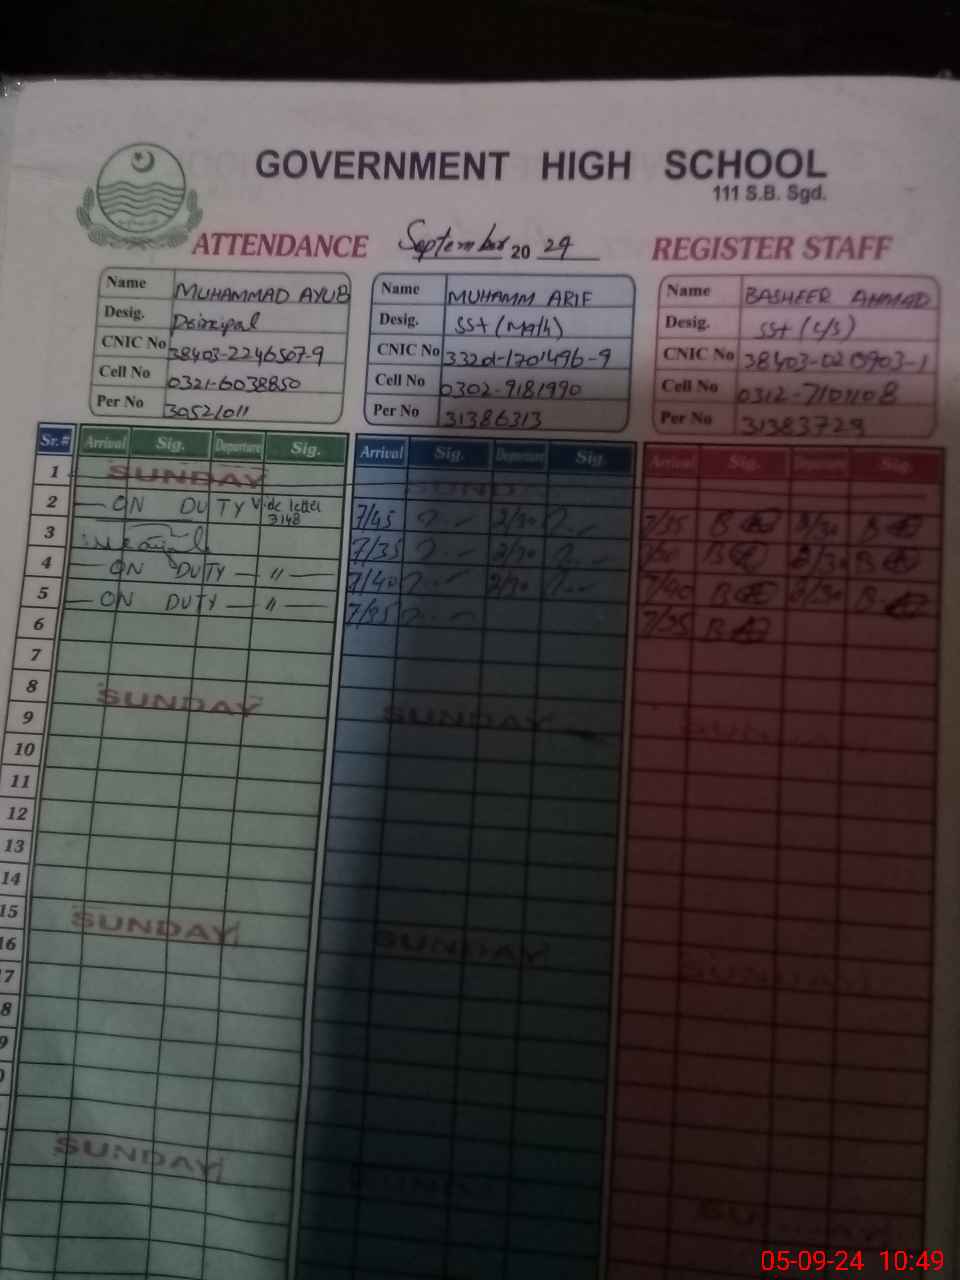 GOVERNMENT HIGH SCHOOL
111 S.B. Sgd.
ATTENDANCE September 2024 REGISTER STAFF
Name MUHAMMAD AYUB
Desig. Principal
CNIC No 38403-2246507-9
Cell No 0321-6038850
Per No 30521011
Name MUHAMM ARIF
Desig. SST (Math)
CNIC No 33201-1701496-9
Cell No 0302-9181990
Per No 31386313
Name BASHEER AHMAD
Desig. SST (C/S)
CNIC No 38403-020903-1
Cell No 0312-7101108
Per No 31383729
Sr.# Arrival Sig. Departure Sig. Arrival Sig. Departure Sig. Arrival Sig. Departure Sig.
1 SUNDAY SUNDAY
2 ON DUTY Vide letter 7/45 2/30 7/35 2/30
3 7/35 2/30 2/30
4 ON DUTY — 〃 — 7/40 2/30 7/40 2/30
5 ON DUTY — 〃 — 7/35 7/35
6
7
8 SUNDAY SUNDAY SUNDAY
9
10
11
12
13
14
15 SUNDAY SUNDAY SUNDAY
16
17
8
9
0
SUNDAY SUNDAY
05-09-24 10:49